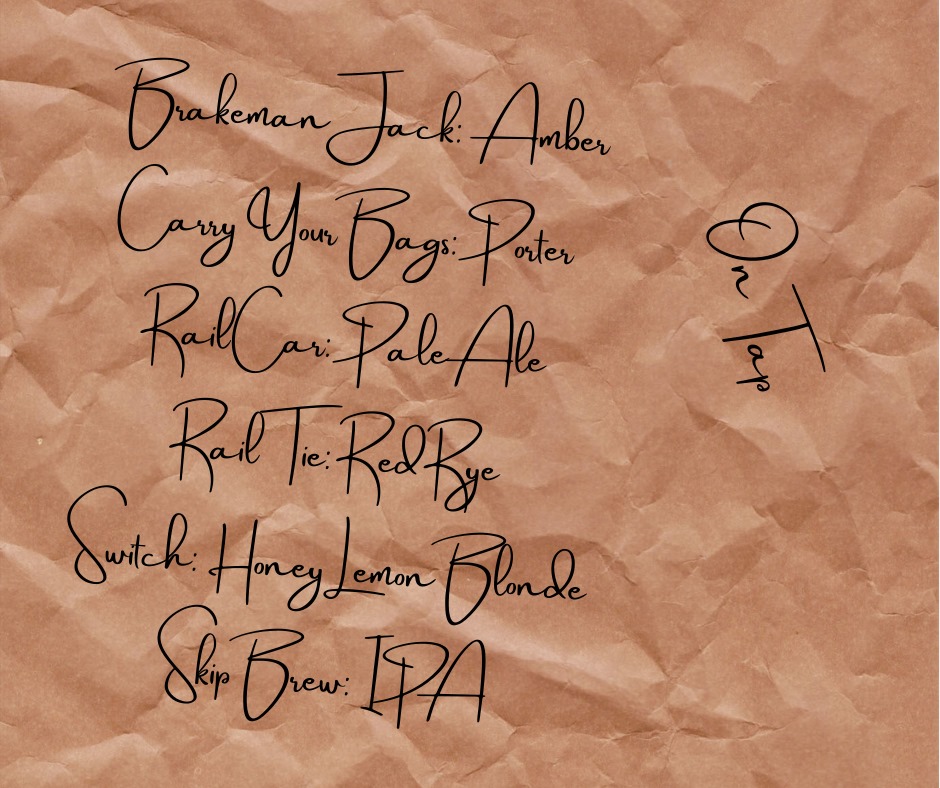 Brakeman Jack: Amber
Carry Your Bags: Porter
Rail Car: Pale Ale
Rail Tie: Red Rye
Switch: Honey Lemon Blonde
Skip Brew: IPA
On Tap